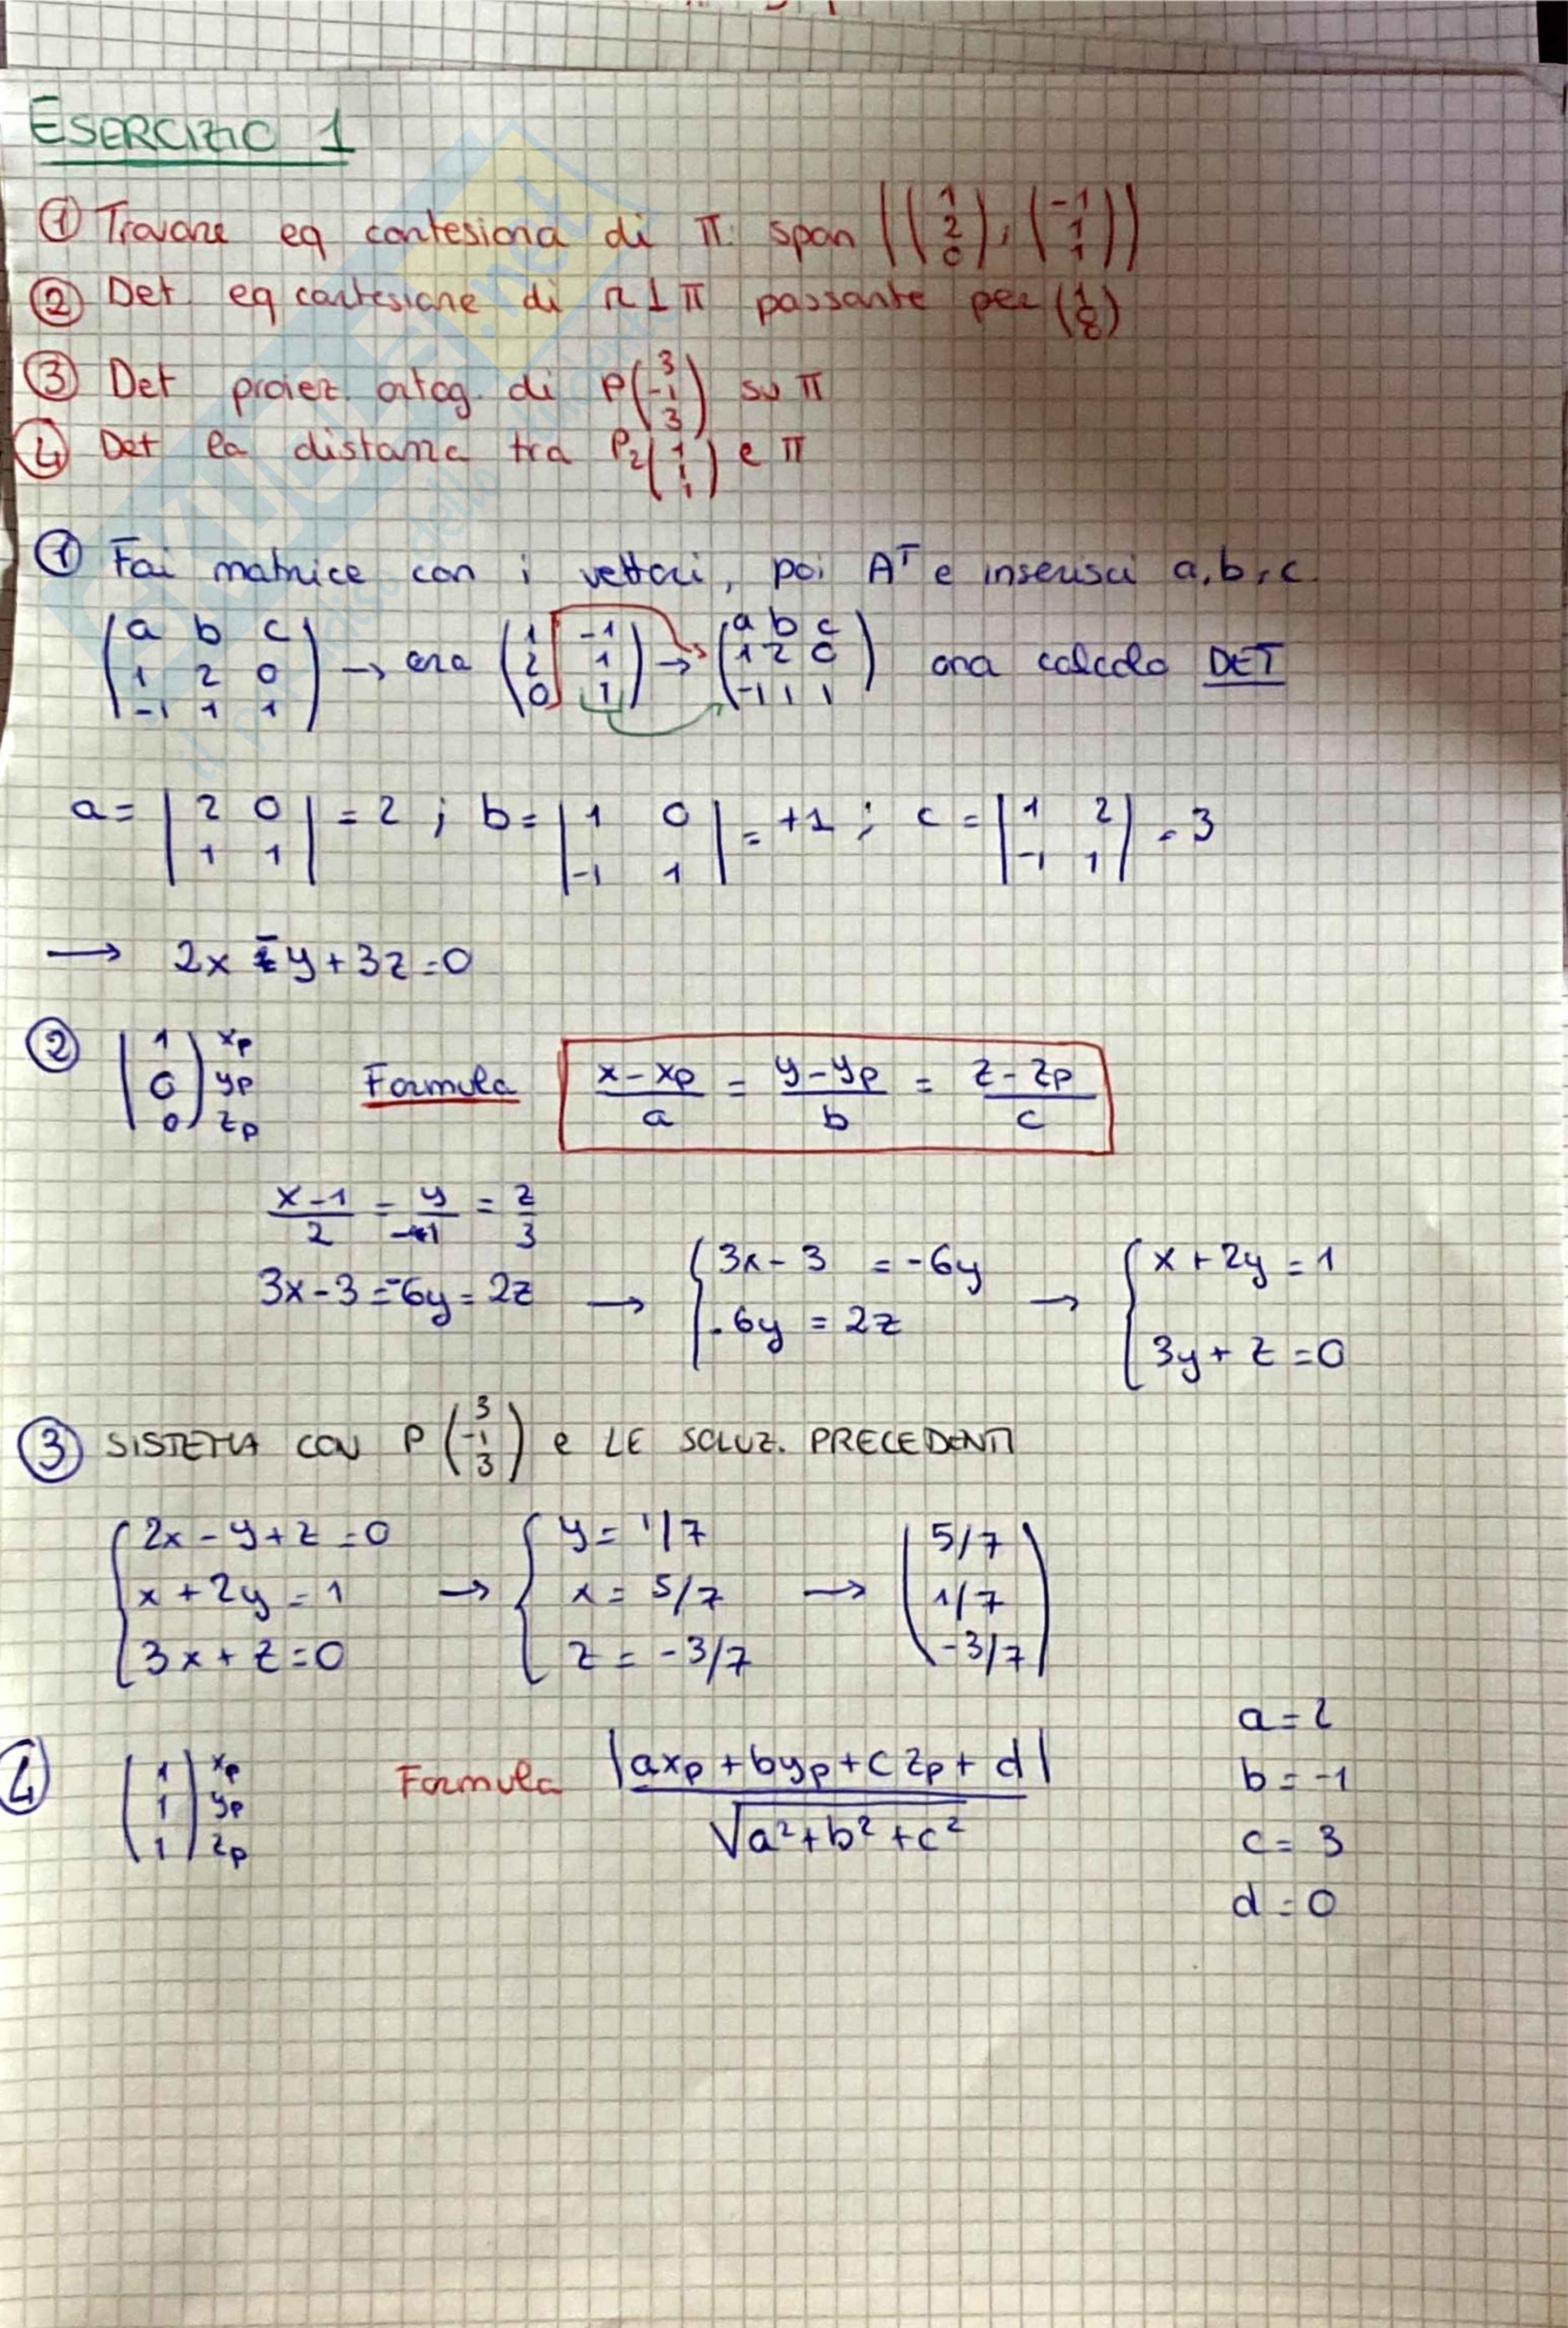 ESERCIZIO 1
① Trovare eq cartesiana di π span ((1 2 0), (-1 1 1))
② Det eq cartesiane di r ⊥ π passante per (1 0 0)
③ Det proiez. ortog. di P(3 -1 3) su π
④ Det la distanza tra P₂(1 1 1) e π
① Fai matrice con i vettori, poi Aᵀ e inserisci a, b, c
(a b c / 1 2 0 / -1 1 1) → era (1 -1 / 2 1 / 0 1) → (a b c / 1 2 0 / -1 1 1) ora calcolo DET
a = |2 0 / 1 1| = 2 ; b = |1 0 / -1 1| = +1 ; c = |1 2 / -1 1| = 3
→ 2x - y + 3z = 0
② (1 0 0) xp yp zp Formula (x - xp)/a = (y - yp)/b = (z - zp)/c
(x - 1)/2 = y/-1 = z/3
3x - 3 = -6y = 2z → { 3x - 3 = -6y / -6y = 2z → { x + 2y = 1 / 3y + z = 0
③ SISTEMA CON P(3 -1 3) e LE SOLUZ. PRECEDENTI
{ 2x - y + z = 0 / x + 2y = 1 / 3x + z = 0 → { y = 1/7 / x = 5/7 / z = -3/7 → (5/7 1/7 -3/7)
④ (1 1 1) xp yp zp Formula |axp + byp + czp + d| / √a² + b² + c²
a = 2
b = -1
c = 3
d = 0